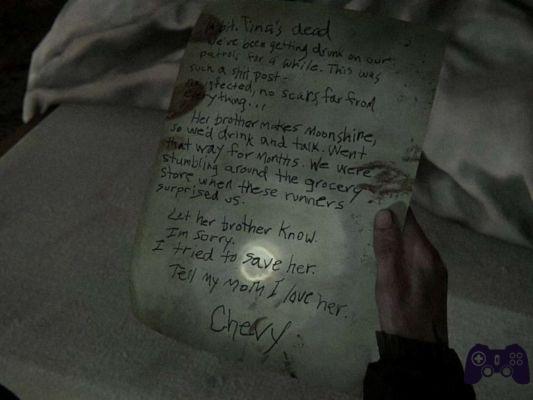 I'm bit. Tina's dead
We've been getting drunk on our
patrols for a while. This was
such a shit post -
no infected, no scars, far from
everything...
Her brother makes moonshine,
so we'd drink and talk. Went
that way for months. We were
stumbling around the grocery
store when these runners
surprised us.
Let her brother know.
I'm sorry.
I tried to save her.
Tell my Mom I love her.
Chevy